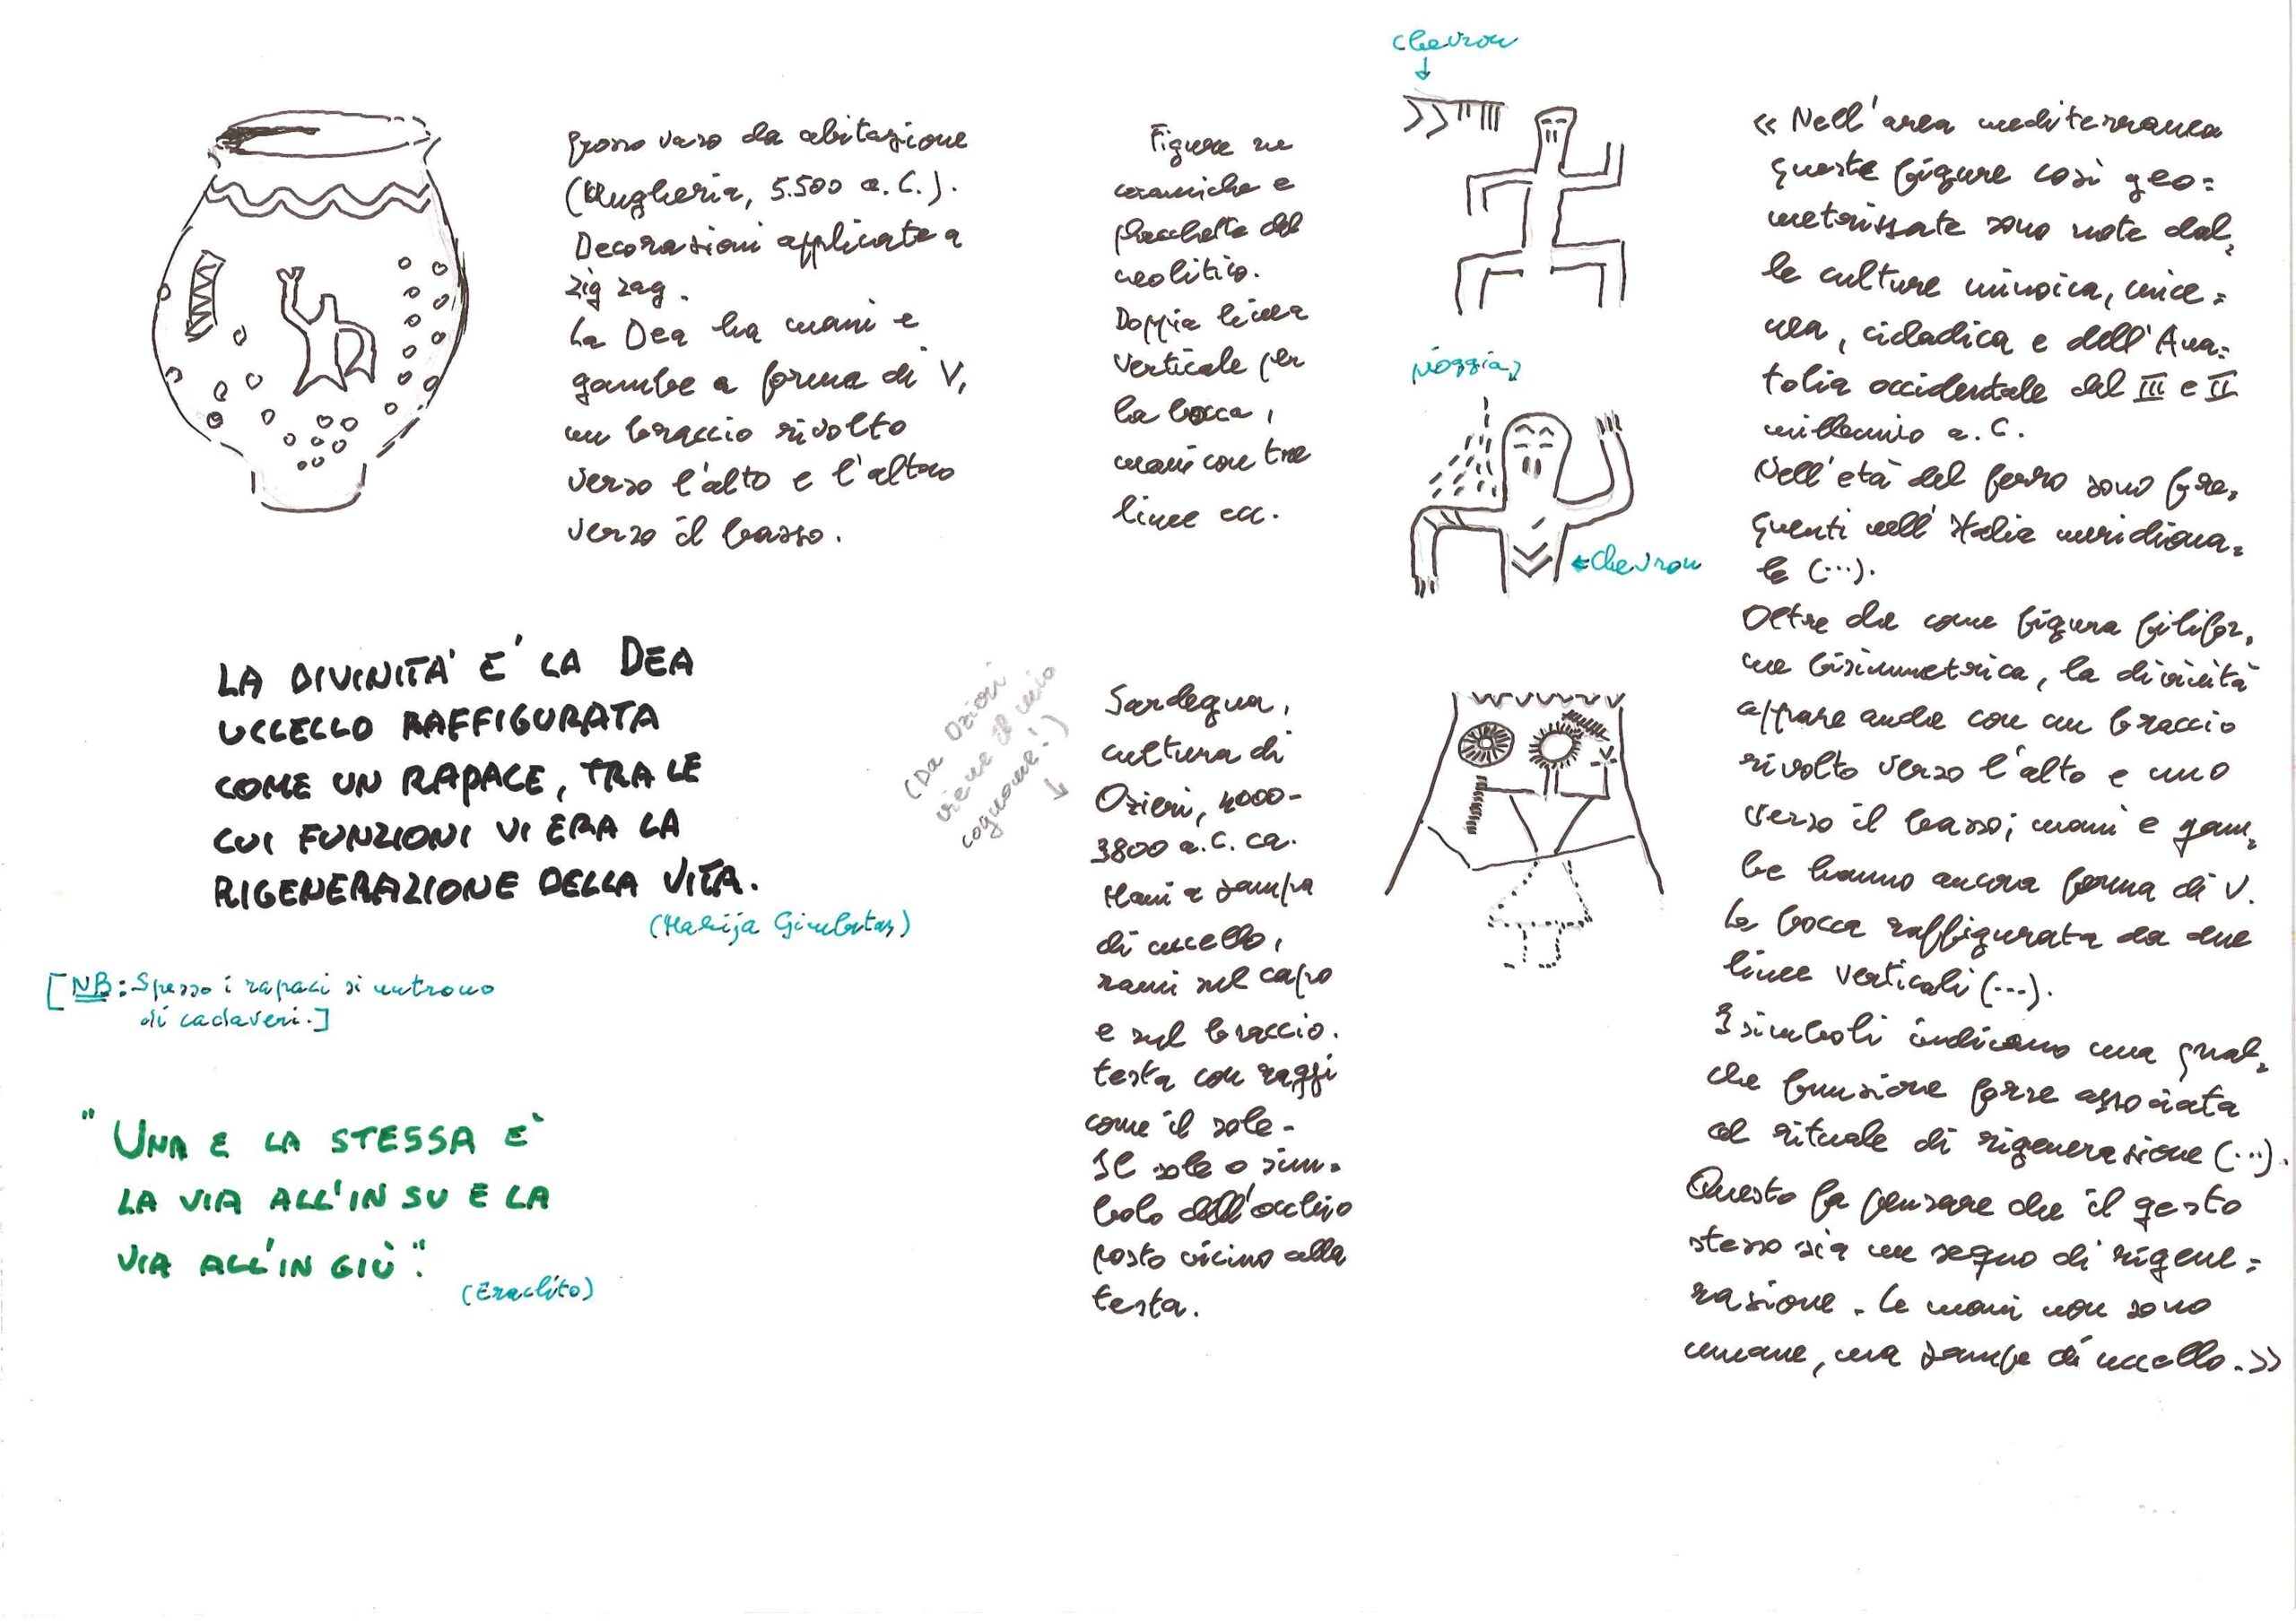 grosso vaso da abitazione
(Ungheria, 5.500 a.C.).
Decorazioni applicate a
zig zag.
La Dea ha mani e
gambe a forma di V,
un braccio rivolto
verso l'alto e l'altro
verso il basso.
LA DIVINITA' E' LA DEA
UCCELLO RAFFIGURATA
COME UN RAPACE, TRA LE
CUI FUNZIONI VI ERA LA
RIGENERAZIONE DELLA VITA.
(Marija Gimbutas)
[NB: Spesso i rapaci si nutrono
di cadaveri.]
"UNA E LA STESSA E'
LA VIA ALL'IN SU E LA
VIA ALL'IN GIÙ".
(Eraclito)
Figure su
ceramiche e
placchette del
neolitico.
Doppia linea
verticale per
la bocca,
mani con tre
linee ecc.
chevron
pioggia
chevron
(Da Ozieri
viene il mio
cognome!)
Sardegna,
cultura di
Ozieri, 4000-
3800 a.C. ca.
Mani a zampa
di uccello,
rami sul capo
e sul braccio.
testa con raggi
come il sole.
Il sole o sim=
bolo dell'occhio
posto vicino alla
testa.
« Nell'area mediterranea
queste figure così geo=
metrizzate sono note dal=
le culture minoica, mice=
nea, cicladica e dell'Ana=
tolia occidentale del III e II
millennio a.C.
Nell'età del ferro sono fre=
quenti nell'Italia meridiona=
le (...).
Oltre che come figura filifor=
me bisimmetrica, la divinità
appare anche con un braccio
rivolto verso l'alto e uno
verso il basso; mani e gam=
be hanno ancora forma di V.
La bocca raffigurata da due
linee verticali (...).
I simboli indicano una qual=
che funzione forse associata
al rituale di rigenerazione (...).
Questo fa pensare che il gesto
stesso sia un segno di rigene=
razione. Le mani non sono
umane, ma zampe di uccello.»